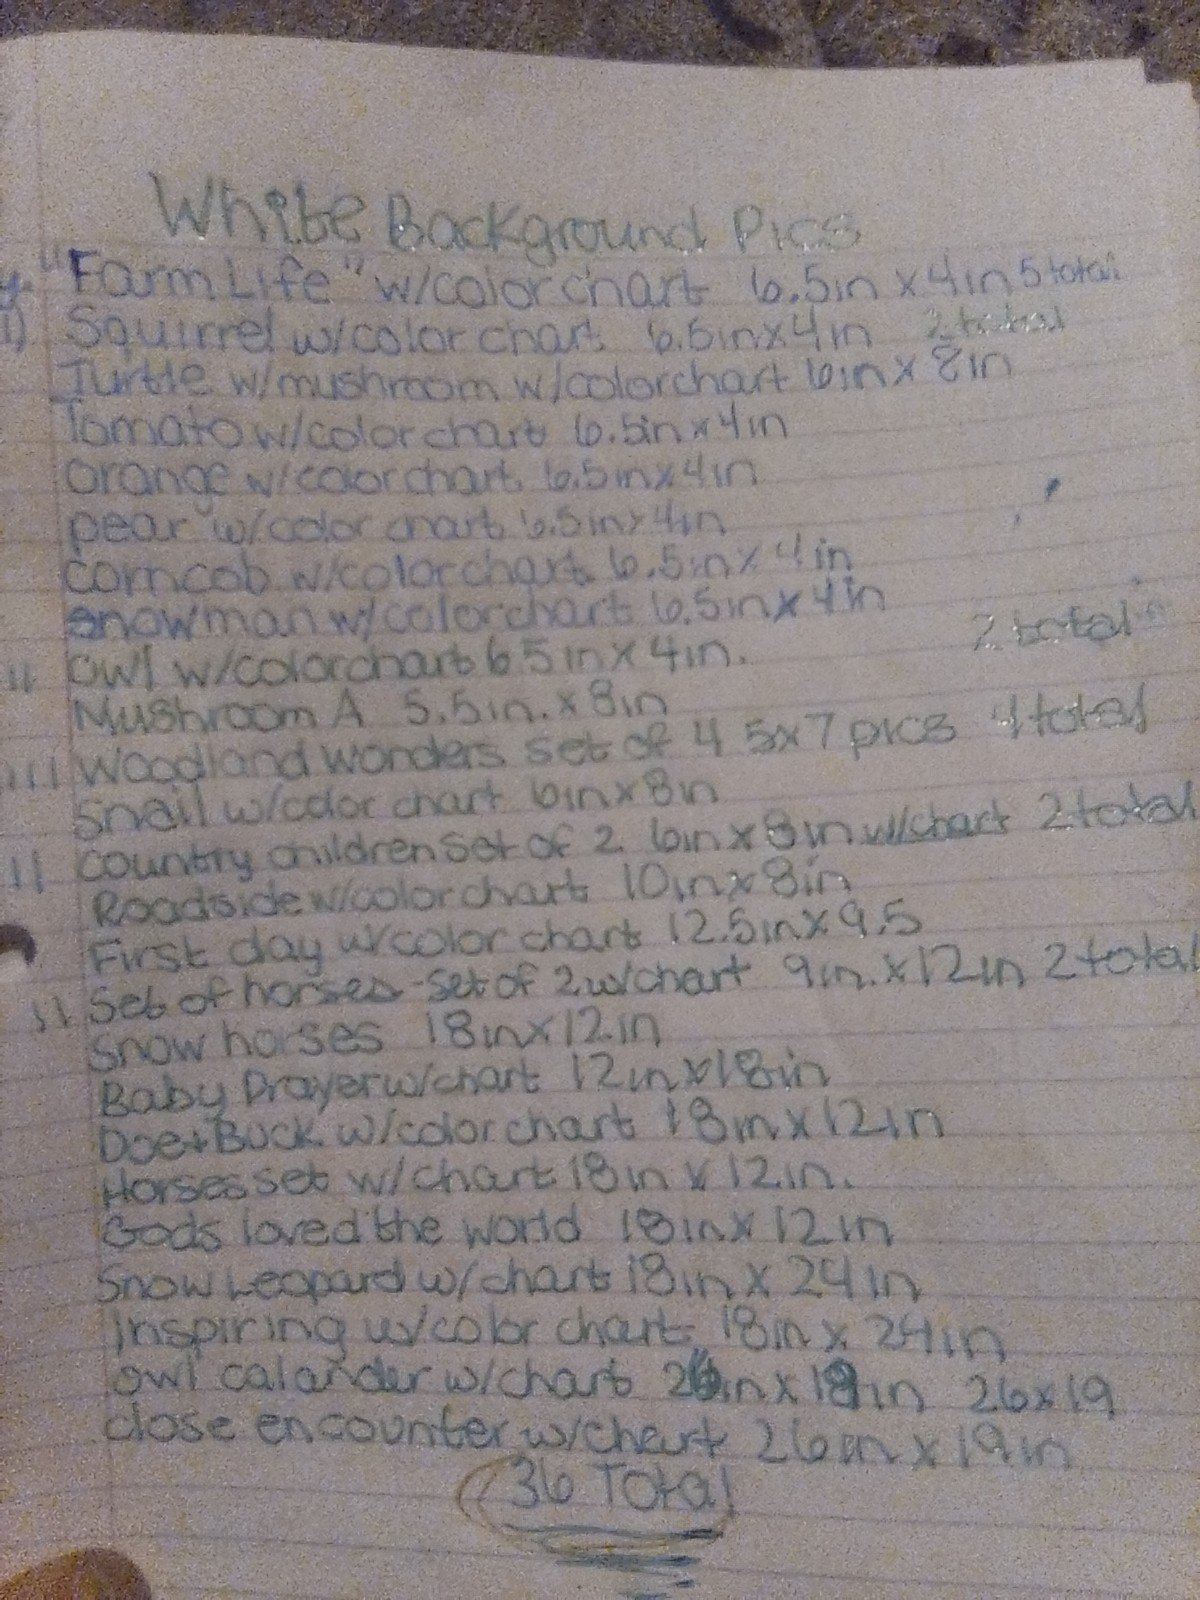 White Background Pics
"Farm Life" w/colorchart 6.5in x 4in 5 total
11) Squirrel w/color chart 6.5inx4in 2 total
Turtle w/mushroom w/colorchart 6in x 8in
Tomato w/color chart 6.5in x 4in
orange w/color chart. 6.5inx4in
pear w/color chart 6.5inx4in
corncob w/colorchart 6.5in x 4in
snowman w/colorchart 6.5inx4in
11 owl w/colorchart 6.5inx4in. 2 total
Mushroom A 5.5in. x 8in
1111 Woodland wonders set of 4 5x7 pics 4 total
Snail w/color chart 6inx8in
11 country children set of 2 6in x 8in w/chart 2 total
Roadside w/color chart 10in x 8in
First day w/color chart 12.5inx9.5
11 Set of horses - set of 2 w/chart 9in. x 12in 2 total
Snow horses 18inx12in
Baby Prayer w/chart 12inx18in
Doe + Buck w/color chart 18in x 12in
Horses set w/chart 18in x 12in.
Gods loved the world 18in x 12in
Snow Leopard w/chart 18in x 24in
inspiring w/color chart 18in x 24in
owl calander w/chart 26in x 19in 26x19
close encounter w/chart 26in x 19in
36 Total